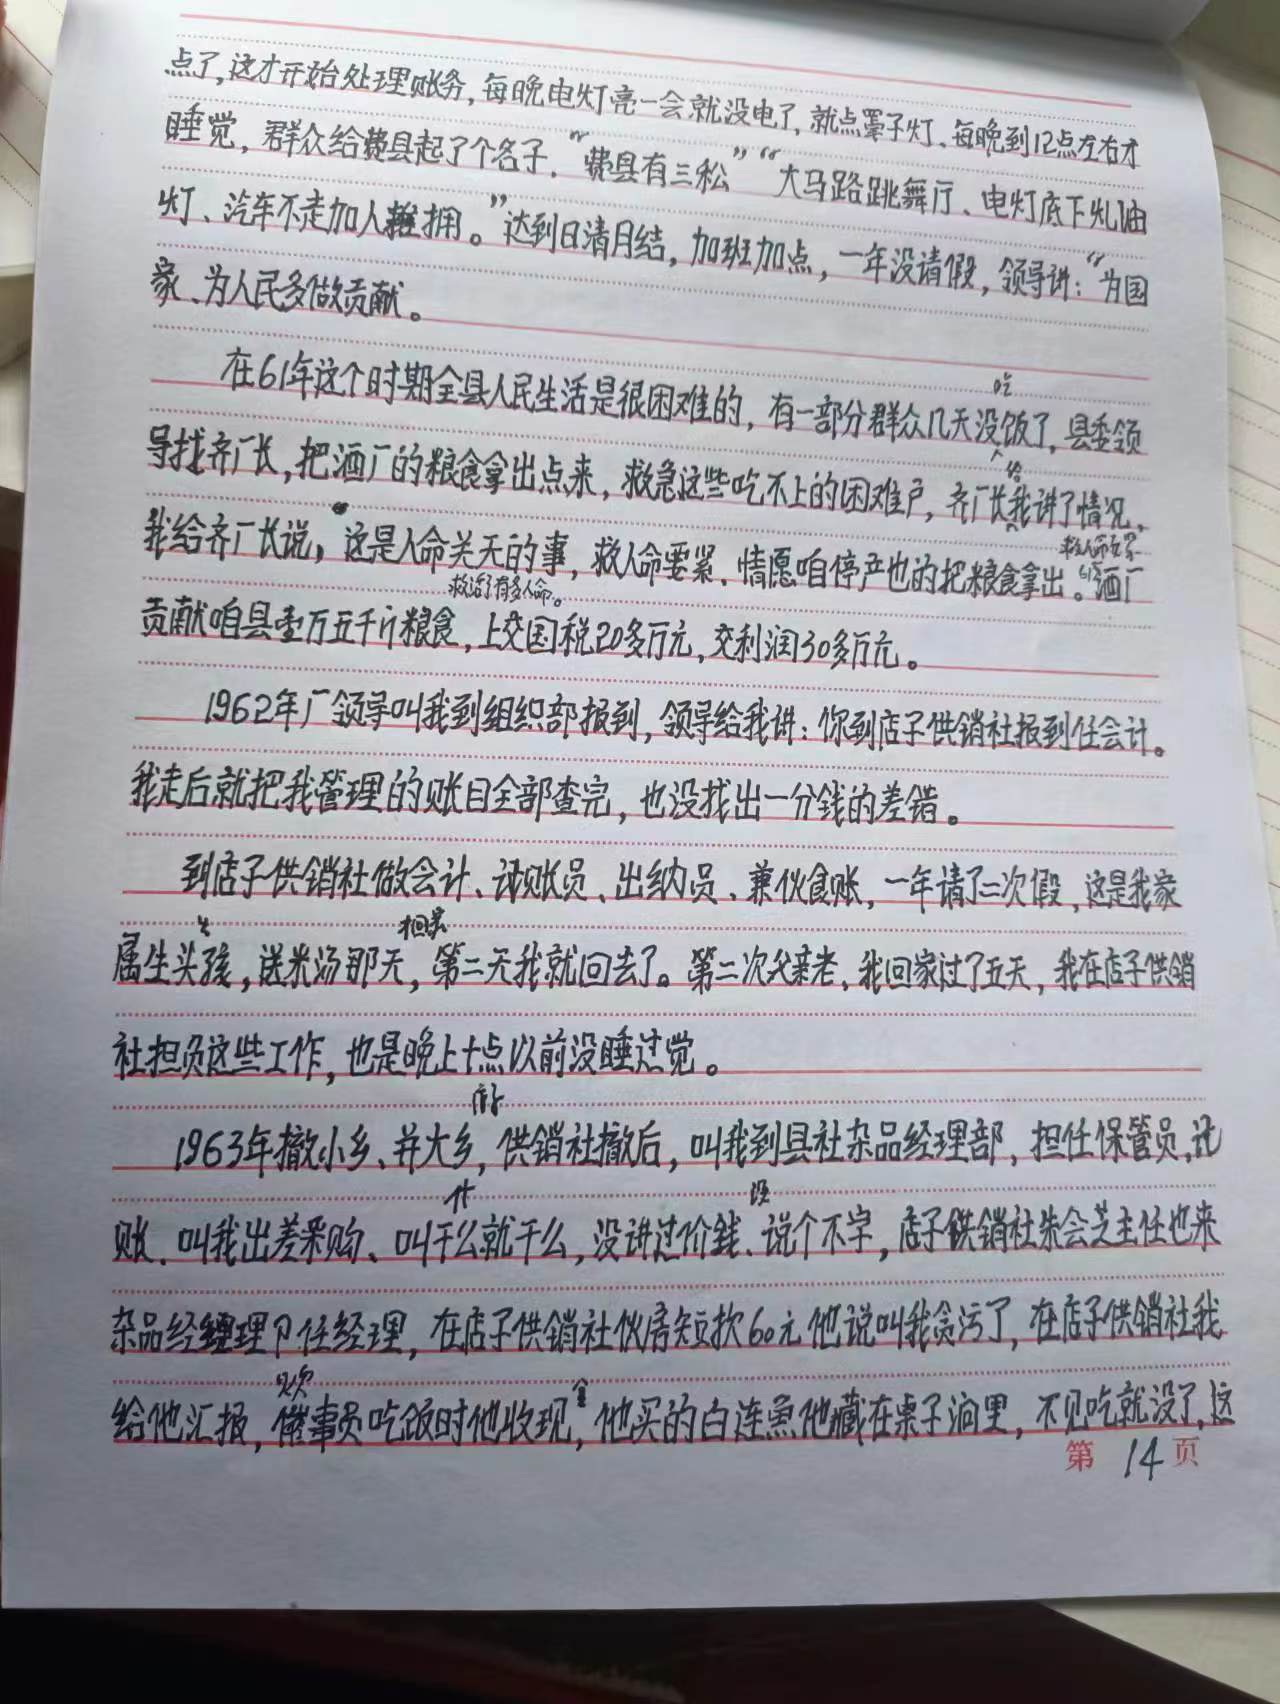 点了,这才开始处理账务,每晚电灯亮一会就没电了,就点罩子灯、每晚到12点左右才
睡觉,群众给费县起了个名子.“费县有三松”“大马路跳舞厅、电灯底下灿油
灯、汽车不走加人推拥。”达到日清月结,加班加点,一年没请假,领导讲:“为国
家、为人民多做贡献。
吃
在61年这个时期全县人民生活是很困难的,有一部分群众几天没饭了,县委领
给
导找齐厂长,把酒厂的粮食拿出点来,救急这些吃不上的困难户,齐厂长我讲了情况,
救人命
我给齐厂长说,这是人命关天的事,救人命要紧.情愿咱停产也的把粮食拿出。61酒厂
救治了有多人命。
贡献咱县壹万五千斤粮食,上交国税20多万元,交利润30多万元。
1962年厂领导叫我到组织部报到,领导给我讲:你到店子供销社报到任会计。
我走后就把我管理的账目全部查完,也没找出一分钱的差错。
到店子供销社做会计、记账员、出纳员、兼伙食账,一年请了二次假,这是我家
回家
属生头孩,送米汤那天,第二天我就回去了。第二次父亲老,我回家过了五天,我在店子供销
社担负这些工作,也是晚上十点以前没睡过觉。
1963年撤小乡、并大乡,供销社撤后,叫我到县社杂品经理部,担任保管员,记
什
没
账.叫我出差采购、叫干么就干么,没讲过价钱、说个不字,店子供销社朱会芝主任也来
杂品经理卩任经理,在店子供销社伙房短款60元他说叫我贪污了,在店子供销社我
给他汇报,催事员吃饭时他收现,他买的白连鱼他藏在桌子洞里,不见吃就没了,这
第 14 页